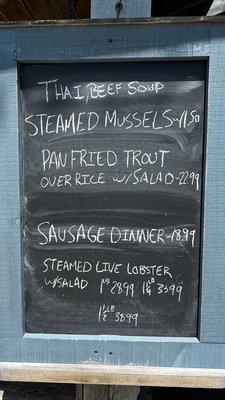 THAI, BEEF SOUP
STEAMED MUSSELS-11.50
PAN FRIED TROUT
OVER RICE W/SALAD-22.99
SAUSAGE DINNER-18.99
STEAMED LIVE LOBSTER
W/SALAD 1LB 28.99 1 1/4LB 33.99
1 1/2LB 38.99